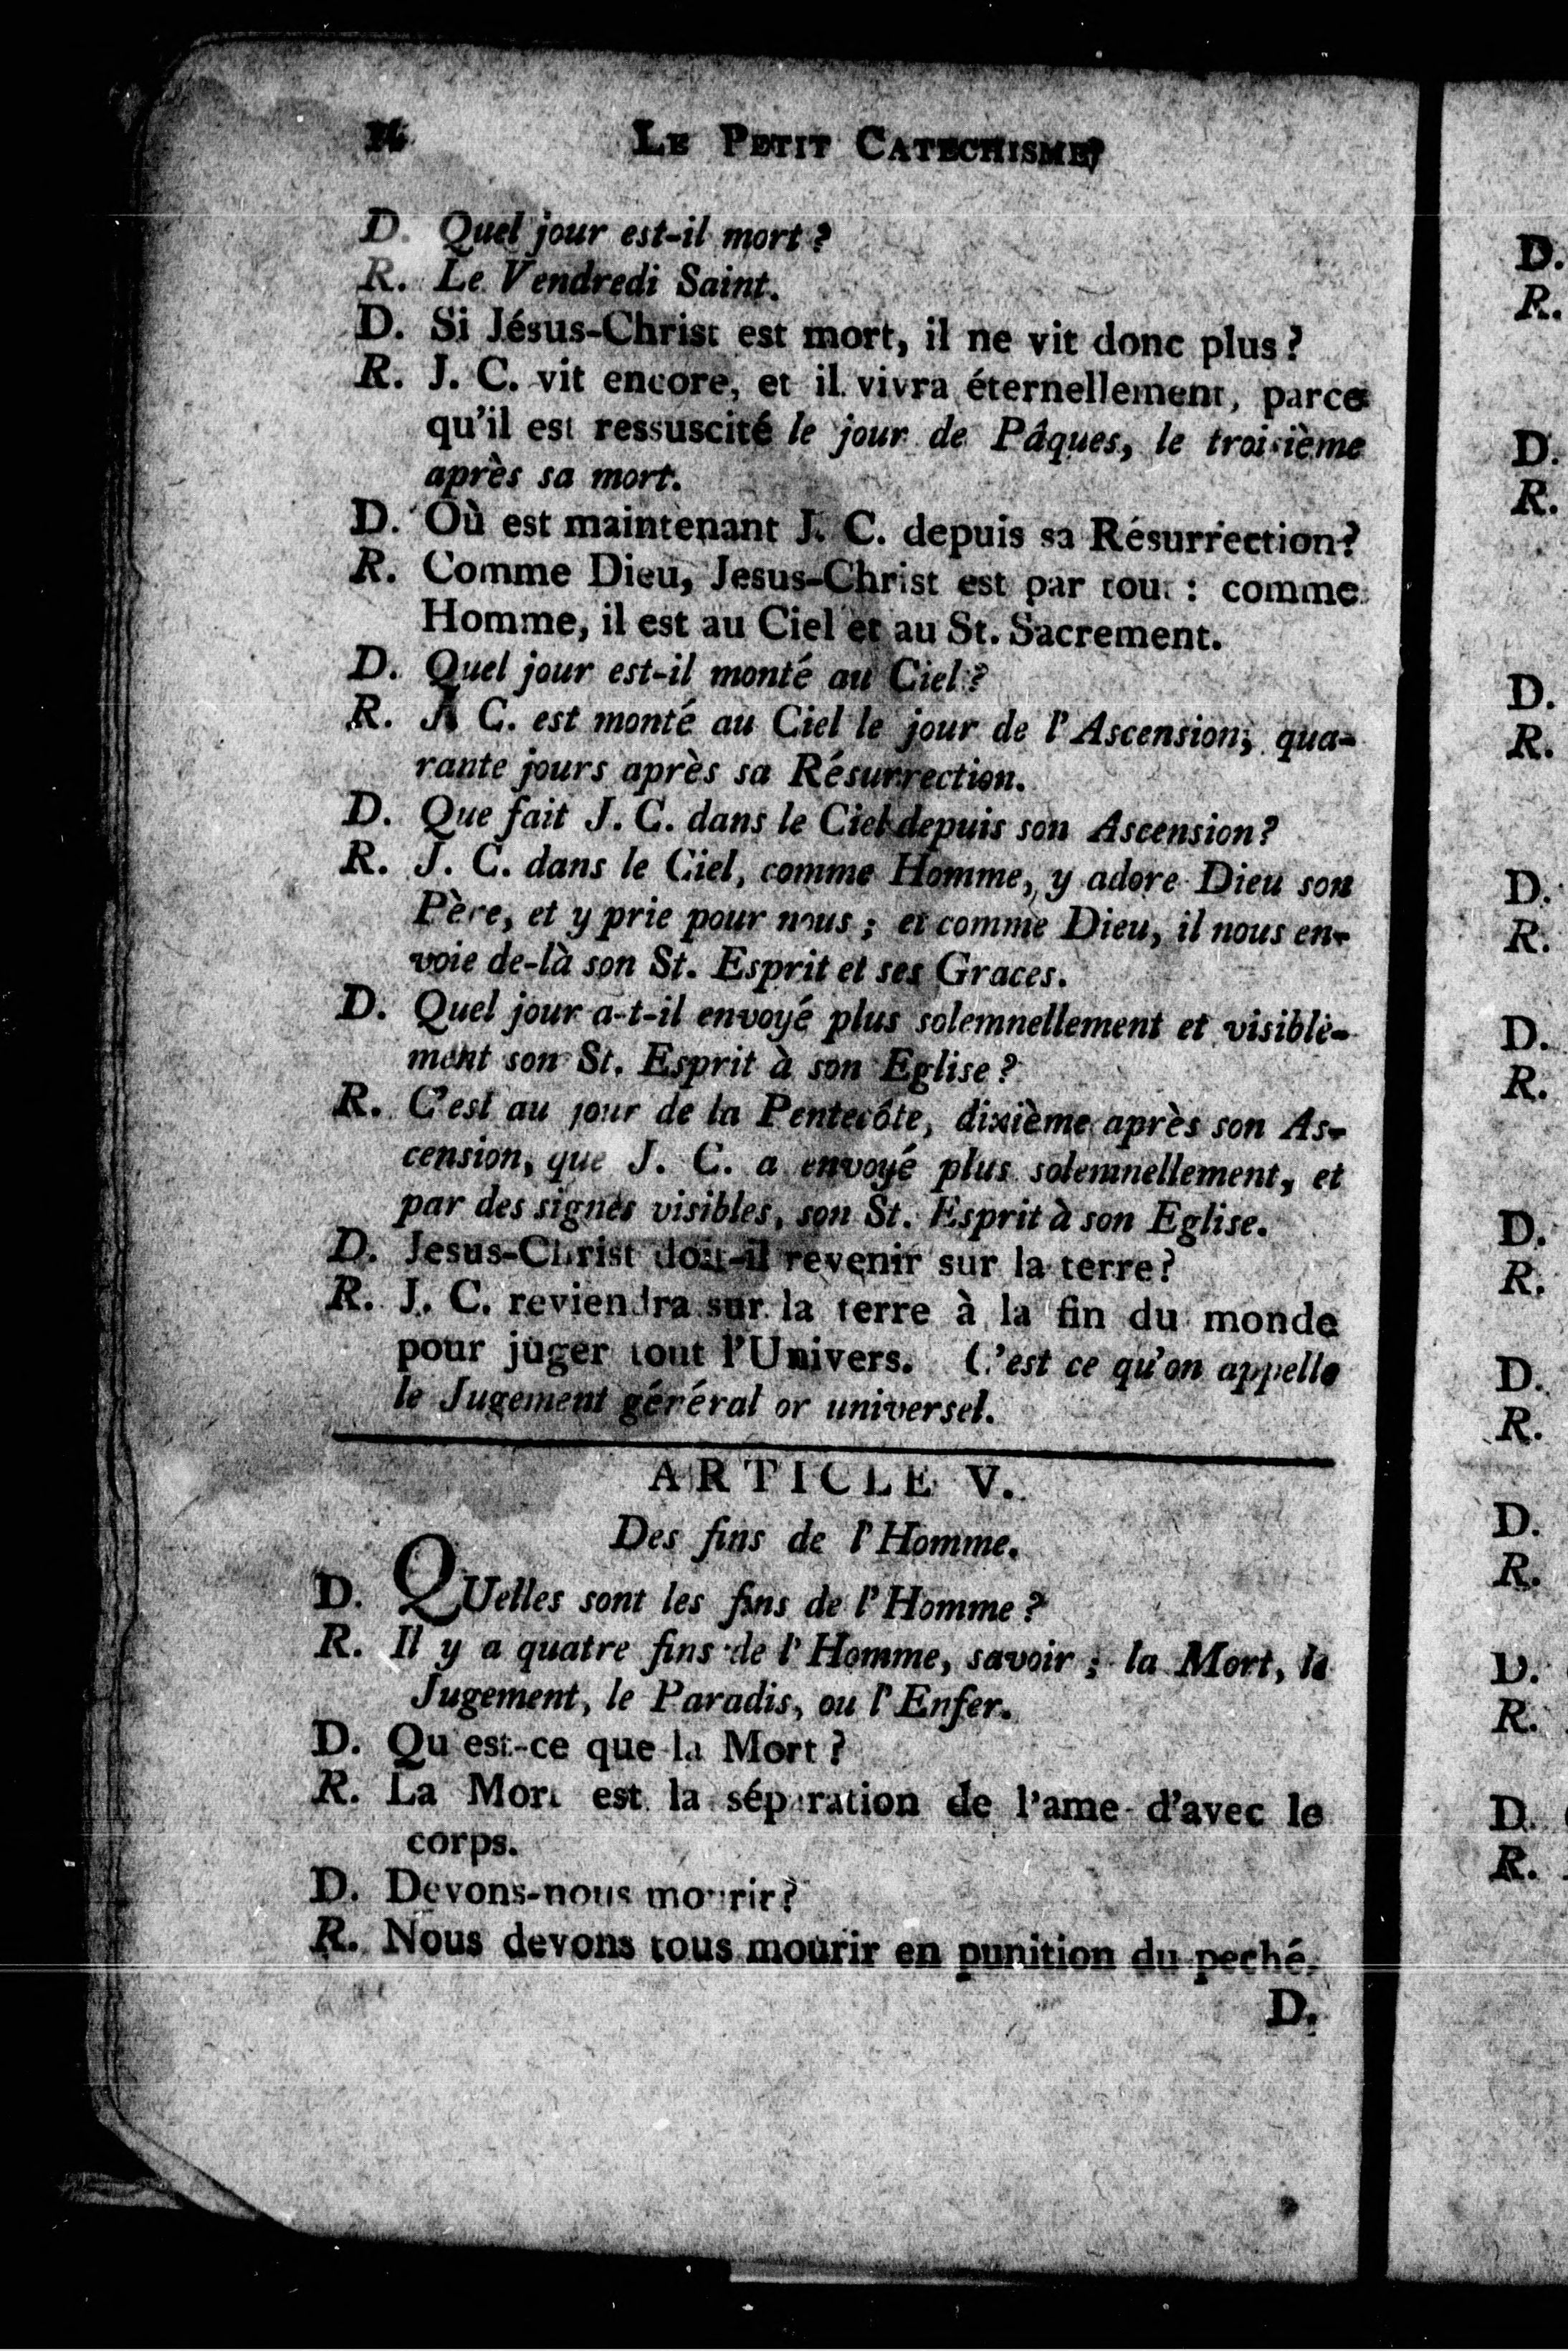 LE PETIT CATECHISME,
D. Quel jour est-il mort ?
R. Le Vendredi Saint.
D. Si Jésus-Christ est mort, il ne vit donc plus ?
R. J. C. vit encore, et il vivra éternellement, parce
qu'il est ressuscité le jour de Pâques, le troisième
après sa mort.
D. Où est maintenant J. C. depuis sa Résurrection ?
R. Comme Dieu, Jesus-Christ est par tout : comme
Homme, il est au Ciel et au St. Sacrement.
D. Quel jour est-il monté au Ciel ?
R. J. C. est monté au Ciel le jour de l'Ascension, qua-
rante jours après sa Résurrection.
D. Que fait J. C. dans le Ciel depuis son Ascension ?
R. J. C. dans le Ciel, comme Homme, y adore Dieu son
Père, et y prie pour nous ; et comme Dieu, il nous en-
voie de-là son St. Esprit et ses Graces.
D. Quel jour a-t-il envoyé plus solemnellement et visible-
ment son St. Esprit à son Eglise ?
R. C'est au jour de la Pentecôte, dixième après son As-
cension, que J. C. a envoyé plus solemnellement, et
par des signes visibles, son St. Esprit à son Eglise.
D. Jesus-Christ doit-il revenir sur la terre ?
R. J. C. reviendra sur la terre à la fin du monde
pour juger tout l'Univers. C'est ce qu'on appelle
le Jugement géréral or universel.
ARTICLE V.
Des fins de l'Homme.
D. QUelles sont les fins de l'Homme ?
R. Il y a quatre fins de l'Homme, savoir ; la Mort, le
Jugement, le Paradis, ou l'Enfer.
D. Qu'est-ce que la Mort ?
R. La Mort est la séparation de l'ame d'avec le
corps.
D. Devons-nous mourir ?
R. Nous devons tous mourir en punition du peché.
D.
D.
R.
D.
R.
D.
R.
D.
R.
D.
R.
D.
R.
D.
R.
D.
R.
D.
R.
D.
R.